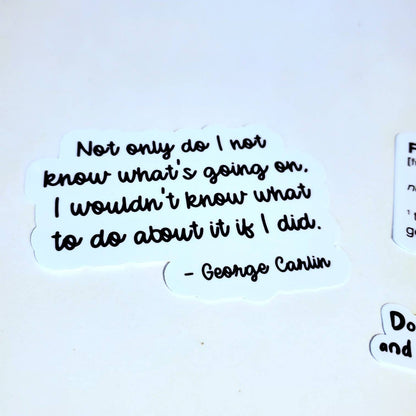 Not only do I not
know what's going on.
I wouldn't know what
to do about it if I did.
- George Carlin
Do
and